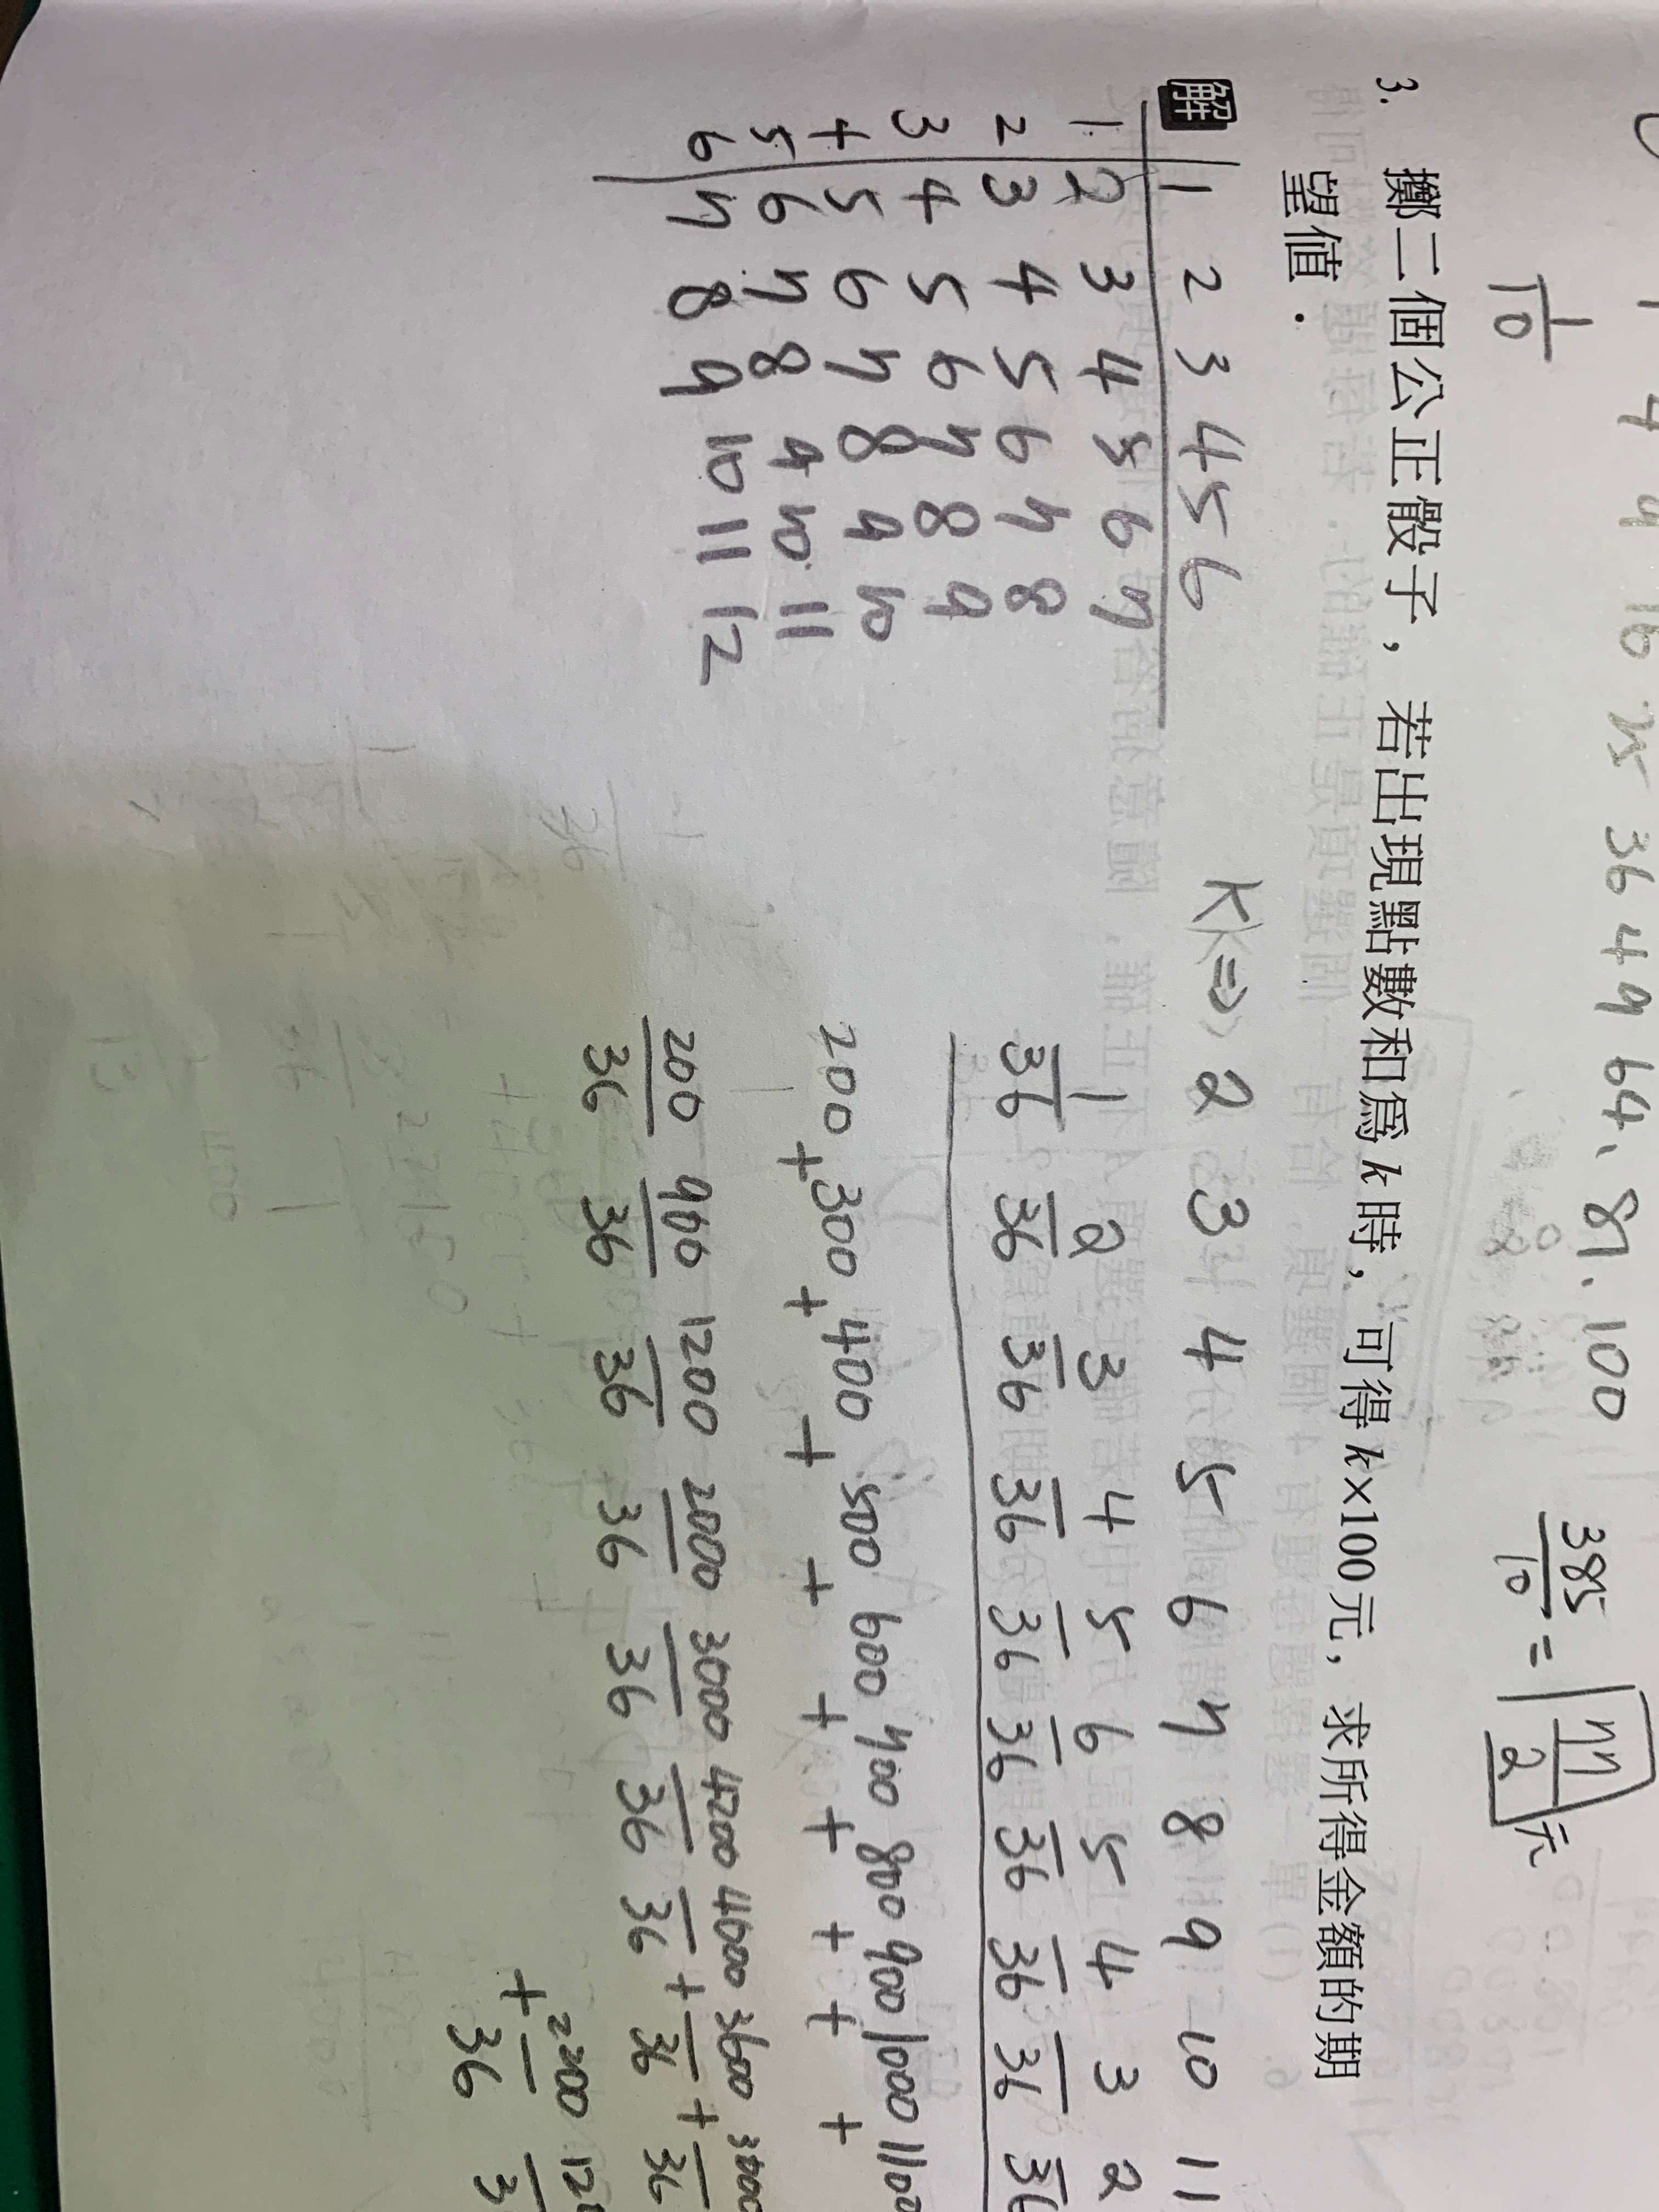 1 4 9 16 25 36 49 64. 81. 100
1/10
385/10 = 77/2 元
3. 擲二個公正骰子，若出現點數和為 k 時，可得 k×100元，求所得金額的期
望值．
解
1 2 3 4 5 6
1 2 3 4 5 6 7
2 3 4 5 6 7 8
3 4 5 6 7 8 9
4 5 6 7 8 9 10
5 6 7 8 9 10 11
6 7 8 9 10 11 12
K ⇒ 2 3 4 5 6 7 8 9 10 11
1/36 2/36 3/36 4/36 5/36 6/36 5/36 4/36 3/36 2/36
200 + 300 + 400 + 500 + 600 + 700 + 800 + 900 + 1000 + 1100
200/36 900/36 1200/36 2000/36 3000/36 4200/36 4000/36 + 3600/36 + 3000/36
+ 2200/36